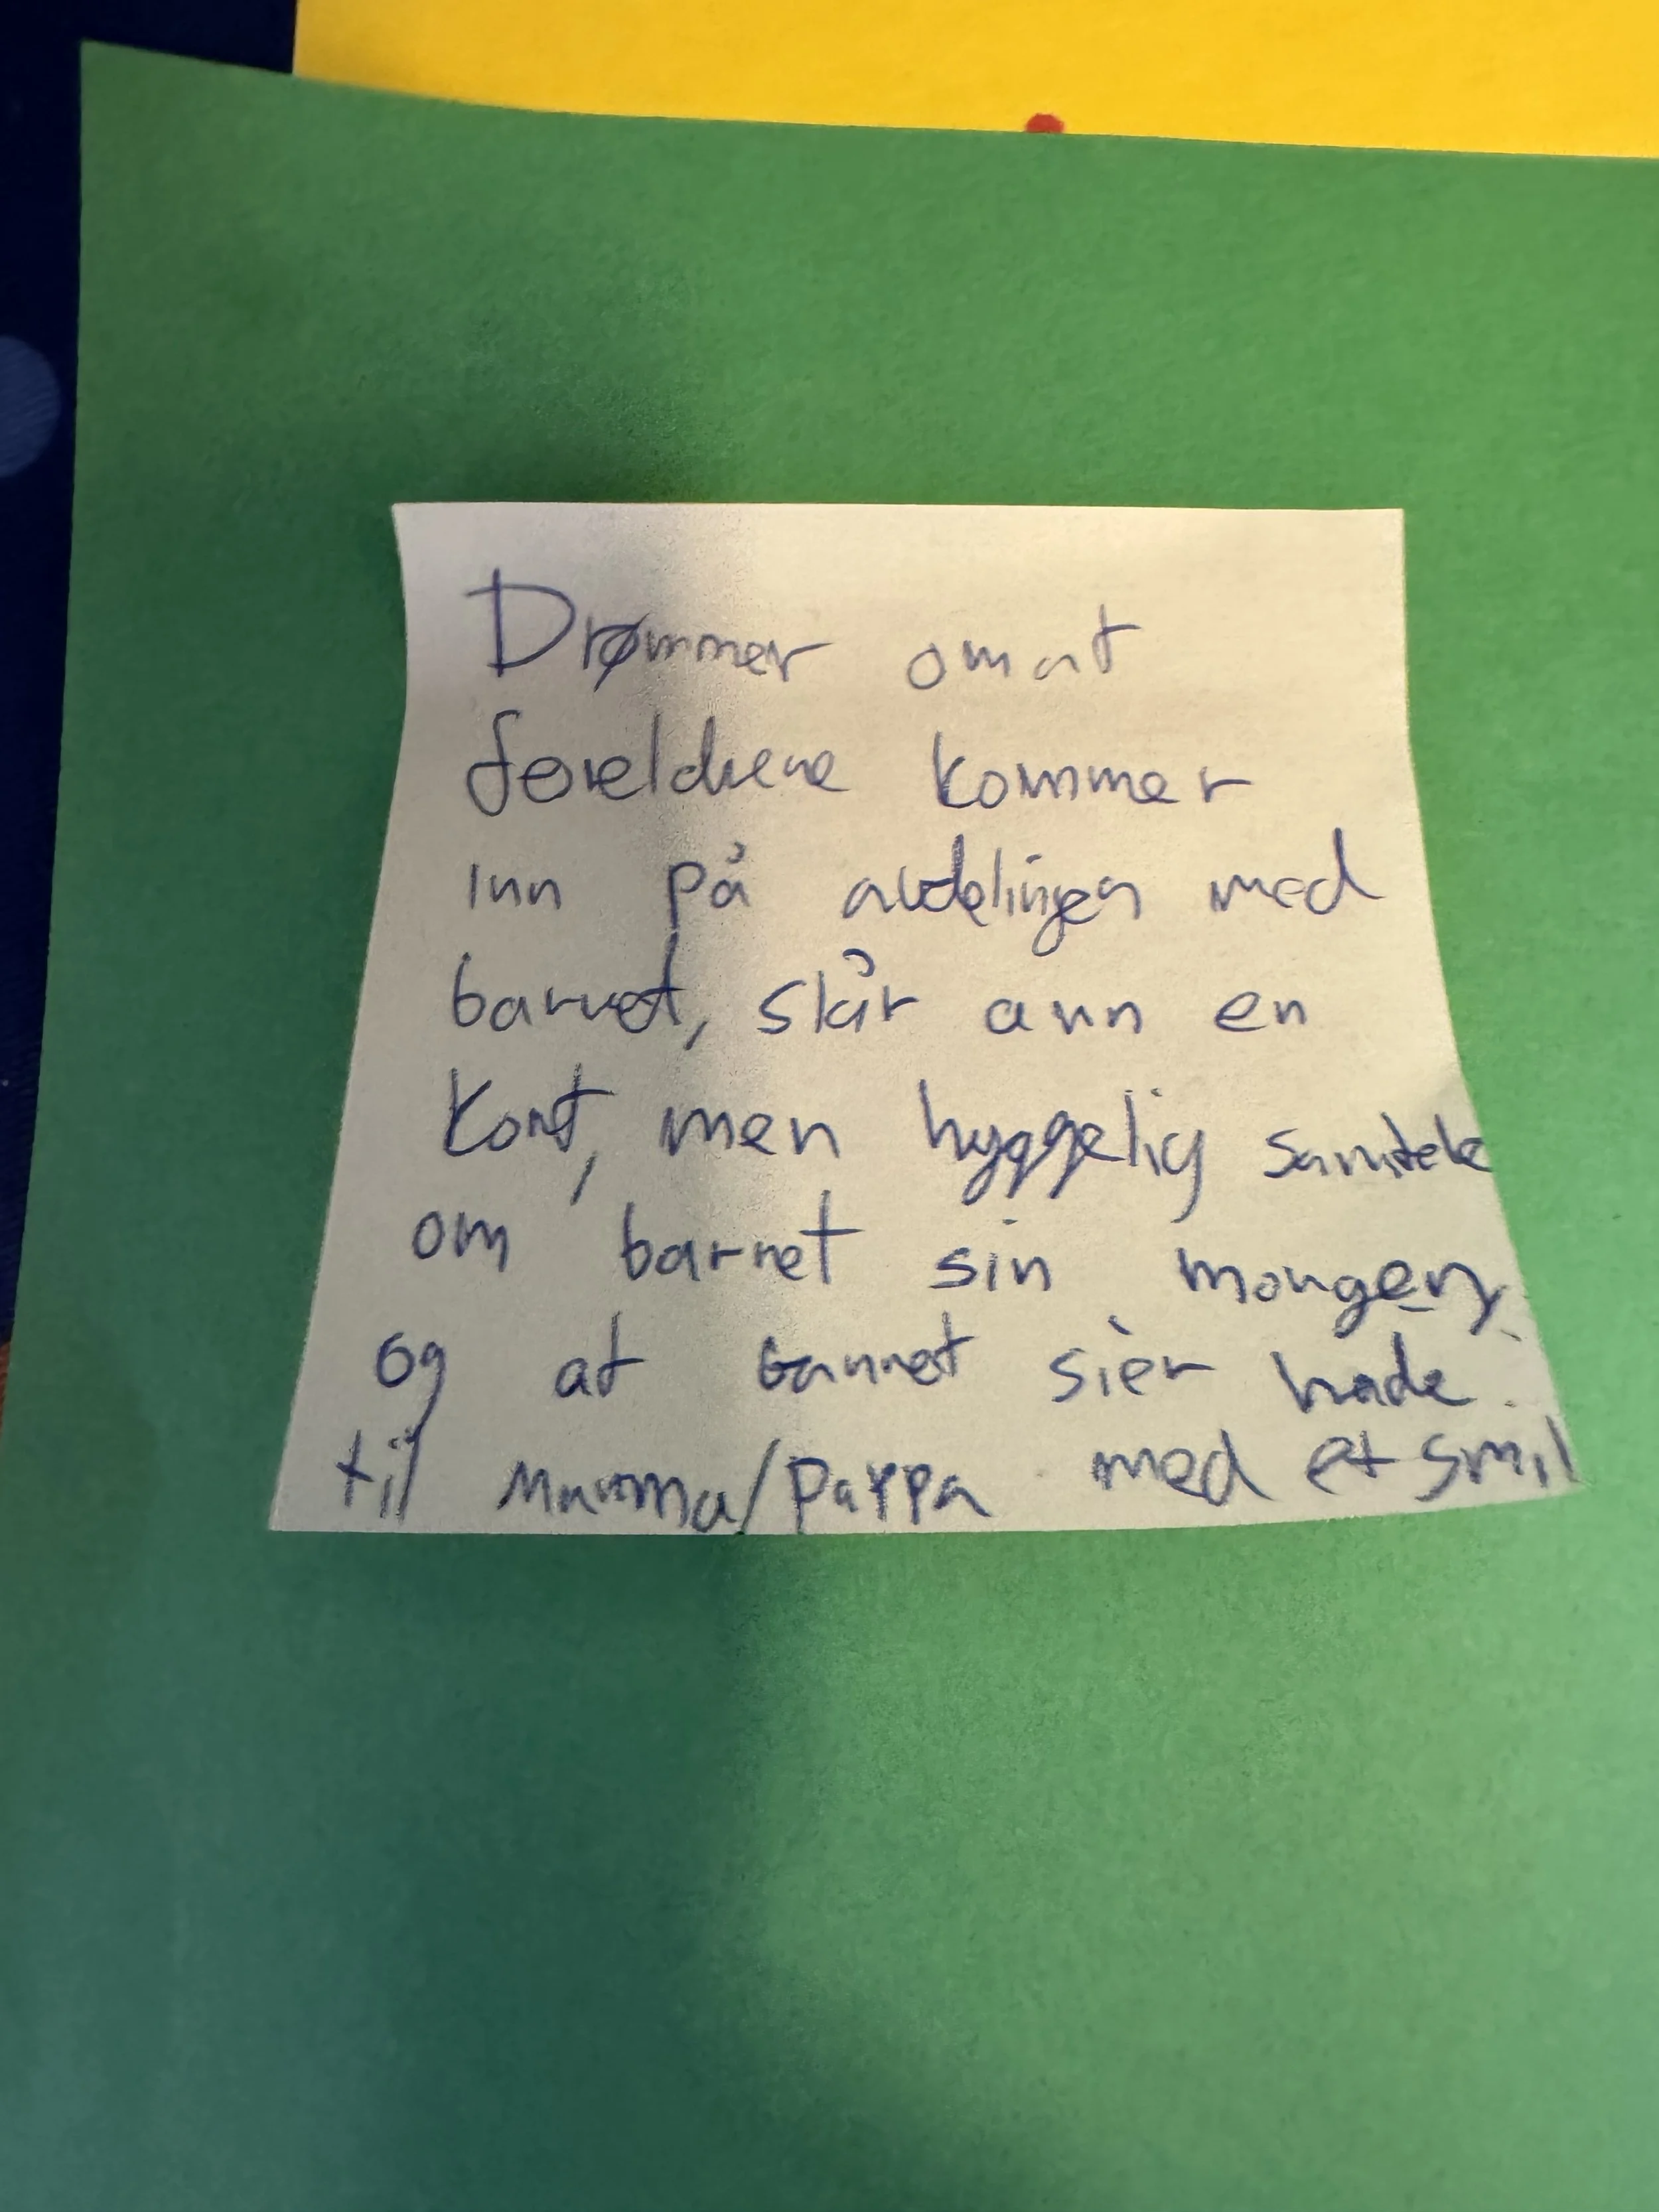 Drømmer om at
foreldrene kommer
inn på avdelingen med
barnet, slår ann en
kort, men hyggelig samtale
om barnet sin morgen,
og at barnet sier hade
til mamma/pappa med et smil